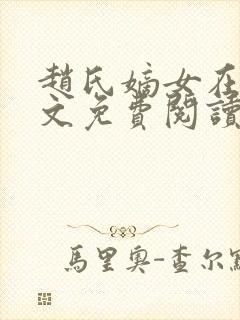 趙氏嫡女在
文免費閱讀
馬里奧-查尔